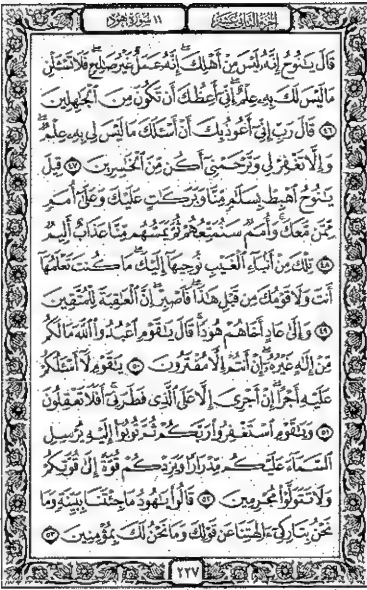 الجزء الثاني عشر ١١ سورة هود
قَالَ يَٰنُوحُ إِنَّهُۥ لَيْسَ مِنْ أَهْلِكَ ۖ إِنَّهُۥ عَمَلٌ غَيْرُ صَٰلِحٍ ۖ فَلَا تَسْـَٔلْنِ
مَا لَيْسَ لَكَ بِهِۦ عِلْمٌ ۖ إِنِّىٓ أَعِظُكَ أَن تَكُونَ مِنَ ٱلْجَٰهِلِينَ
٤٦ قَالَ رَبِّ إِنِّىٓ أَعُوذُ بِكَ أَنْ أَسْـَٔلَكَ مَا لَيْسَ لِى بِهِۦ عِلْمٌ ۖ
وَإِلَّا تَغْفِرْ لِى وَتَرْحَمْنِىٓ أَكُن مِّنَ ٱلْخَٰسِرِينَ ٤٧ قِيلَ
يَٰنُوحُ ٱهْبِطْ بِسَلَٰمٍ مِّنَّا وَبَرَكَٰتٍ عَلَيْكَ وَعَلَىٰٓ أُمَمٍ
مِّمَّن مَّعَكَ ۚ وَأُمَمٌ سَنُمَتِّعُهُمْ ثُمَّ يَمَسُّهُم مِّنَّا عَذَابٌ أَلِيمٌ
٤٨ تِلْكَ مِنْ أَنۢبَآءِ ٱلْغَيْبِ نُوحِيهَآ إِلَيْكَ ۖ مَا كُنتَ تَعْلَمُهَآ
أَنتَ وَلَا قَوْمُكَ مِن قَبْلِ هَٰذَا ۖ فَٱصْبِرْ ۖ إِنَّ ٱلْعَٰقِبَةَ لِلْمُتَّقِينَ
٤٩ وَإِلَىٰ عَادٍ أَخَاهُمْ هُودًا ۚ قَالَ يَٰقَوْمِ ٱعْبُدُوا۟ ٱللَّهَ مَا لَكُم
مِّنْ إِلَٰهٍ غَيْرُهُۥٓ ۖ إِنْ أَنتُمْ إِلَّا مُفْتَرُونَ ٥٠ يَٰقَوْمِ لَآ أَسْـَٔلُكُمْ
عَلَيْهِ أَجْرًا ۖ إِنْ أَجْرِىَ إِلَّا عَلَى ٱلَّذِى فَطَرَنِىٓ ۚ أَفَلَا تَعْقِلُونَ
٥١ وَيَٰقَوْمِ ٱسْتَغْفِرُوا۟ رَبَّكُمْ ثُمَّ تُوبُوٓا۟ إِلَيْهِ يُرْسِلِ
ٱلسَّمَآءَ عَلَيْكُم مِّدْرَارًا وَيَزِدْكُمْ قُوَّةً إِلَىٰ قُوَّتِكُمْ
وَلَا تَتَوَلَّوْا۟ مُجْرِمِينَ ٥٢ قَالُوا۟ يَٰهُودُ مَا جِئْتَنَا بِبَيِّنَةٍ وَمَا
نَحْنُ بِتَارِكِىٓ ءَالِهَتِنَا عَن قَوْلِكَ وَمَا نَحْنُ لَكَ بِمُؤْمِنِينَ ٥٣
٢٢٧